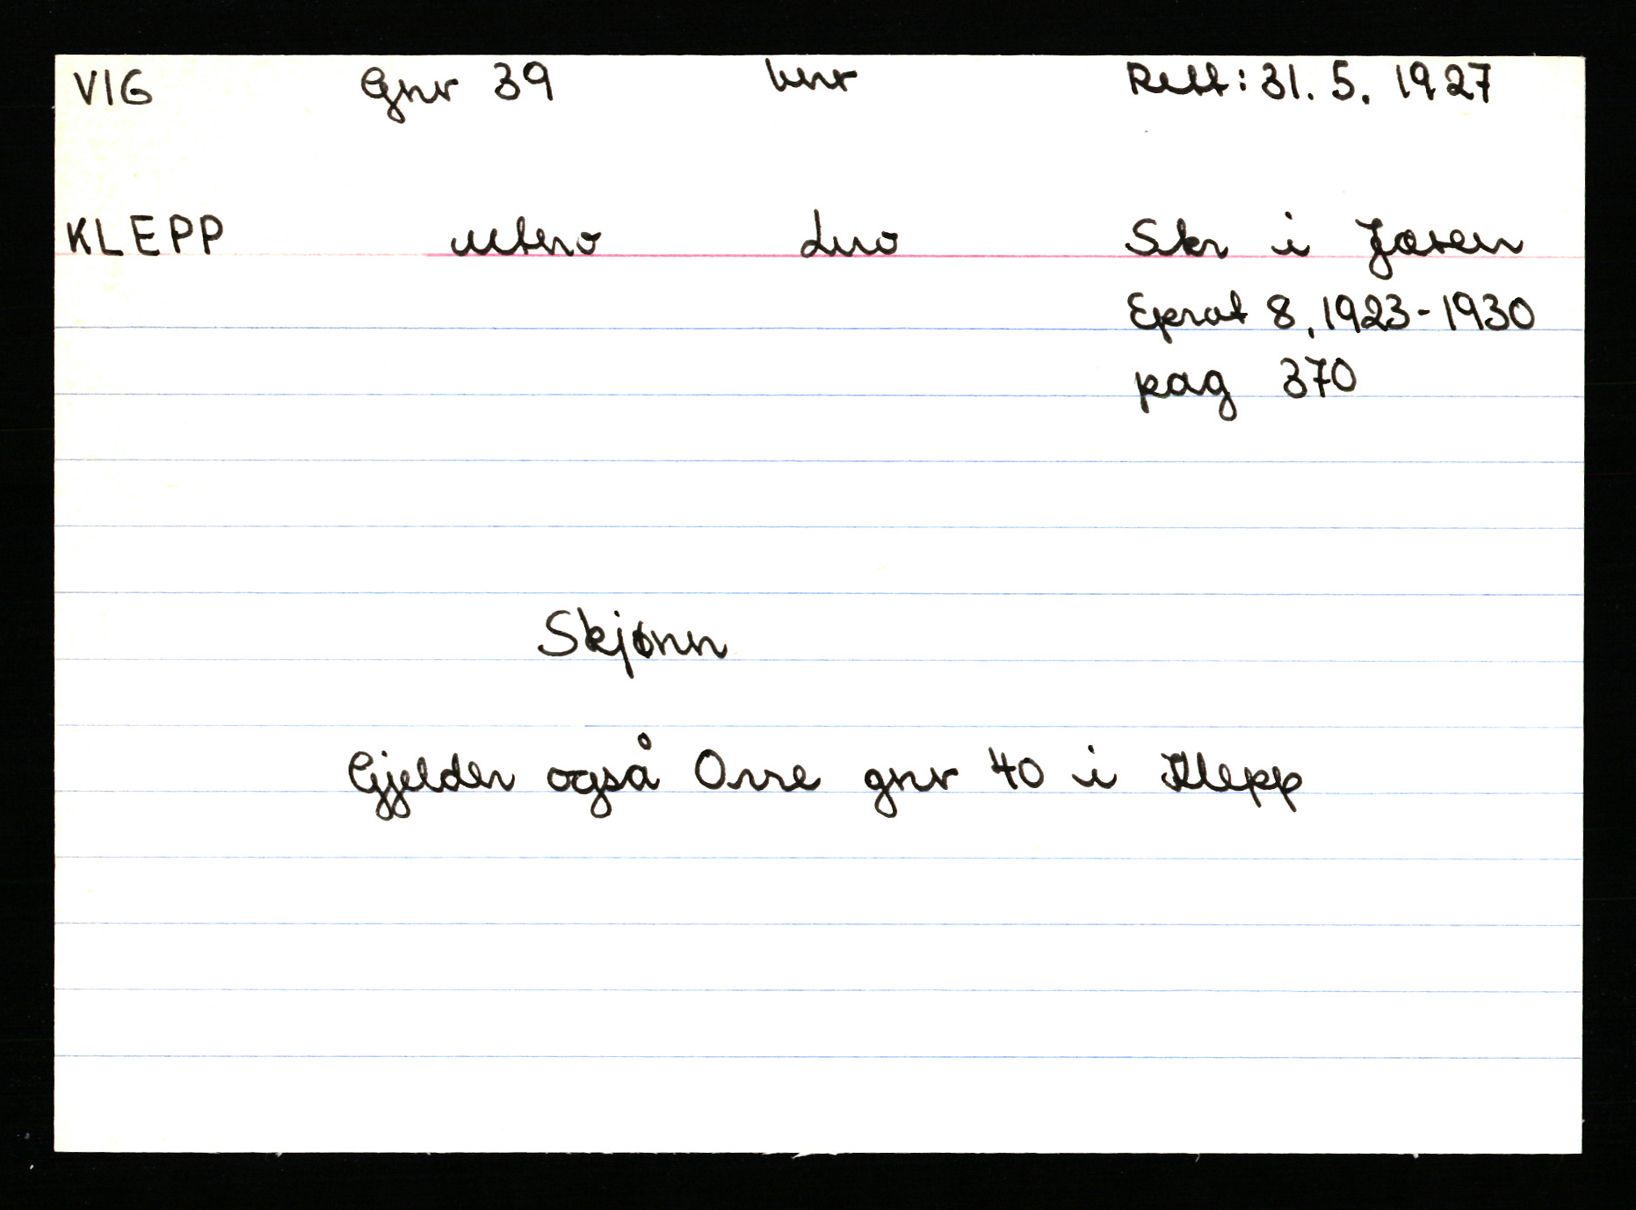 VIG Gnr 39 bnr Rett: 31. 5. 1927
KLEPP utbno Lno Skr i Jæren
Eprot 8, 1923-1930
pag 370
Skjønn
Gjelder også Orre gnr 40 i Klepp